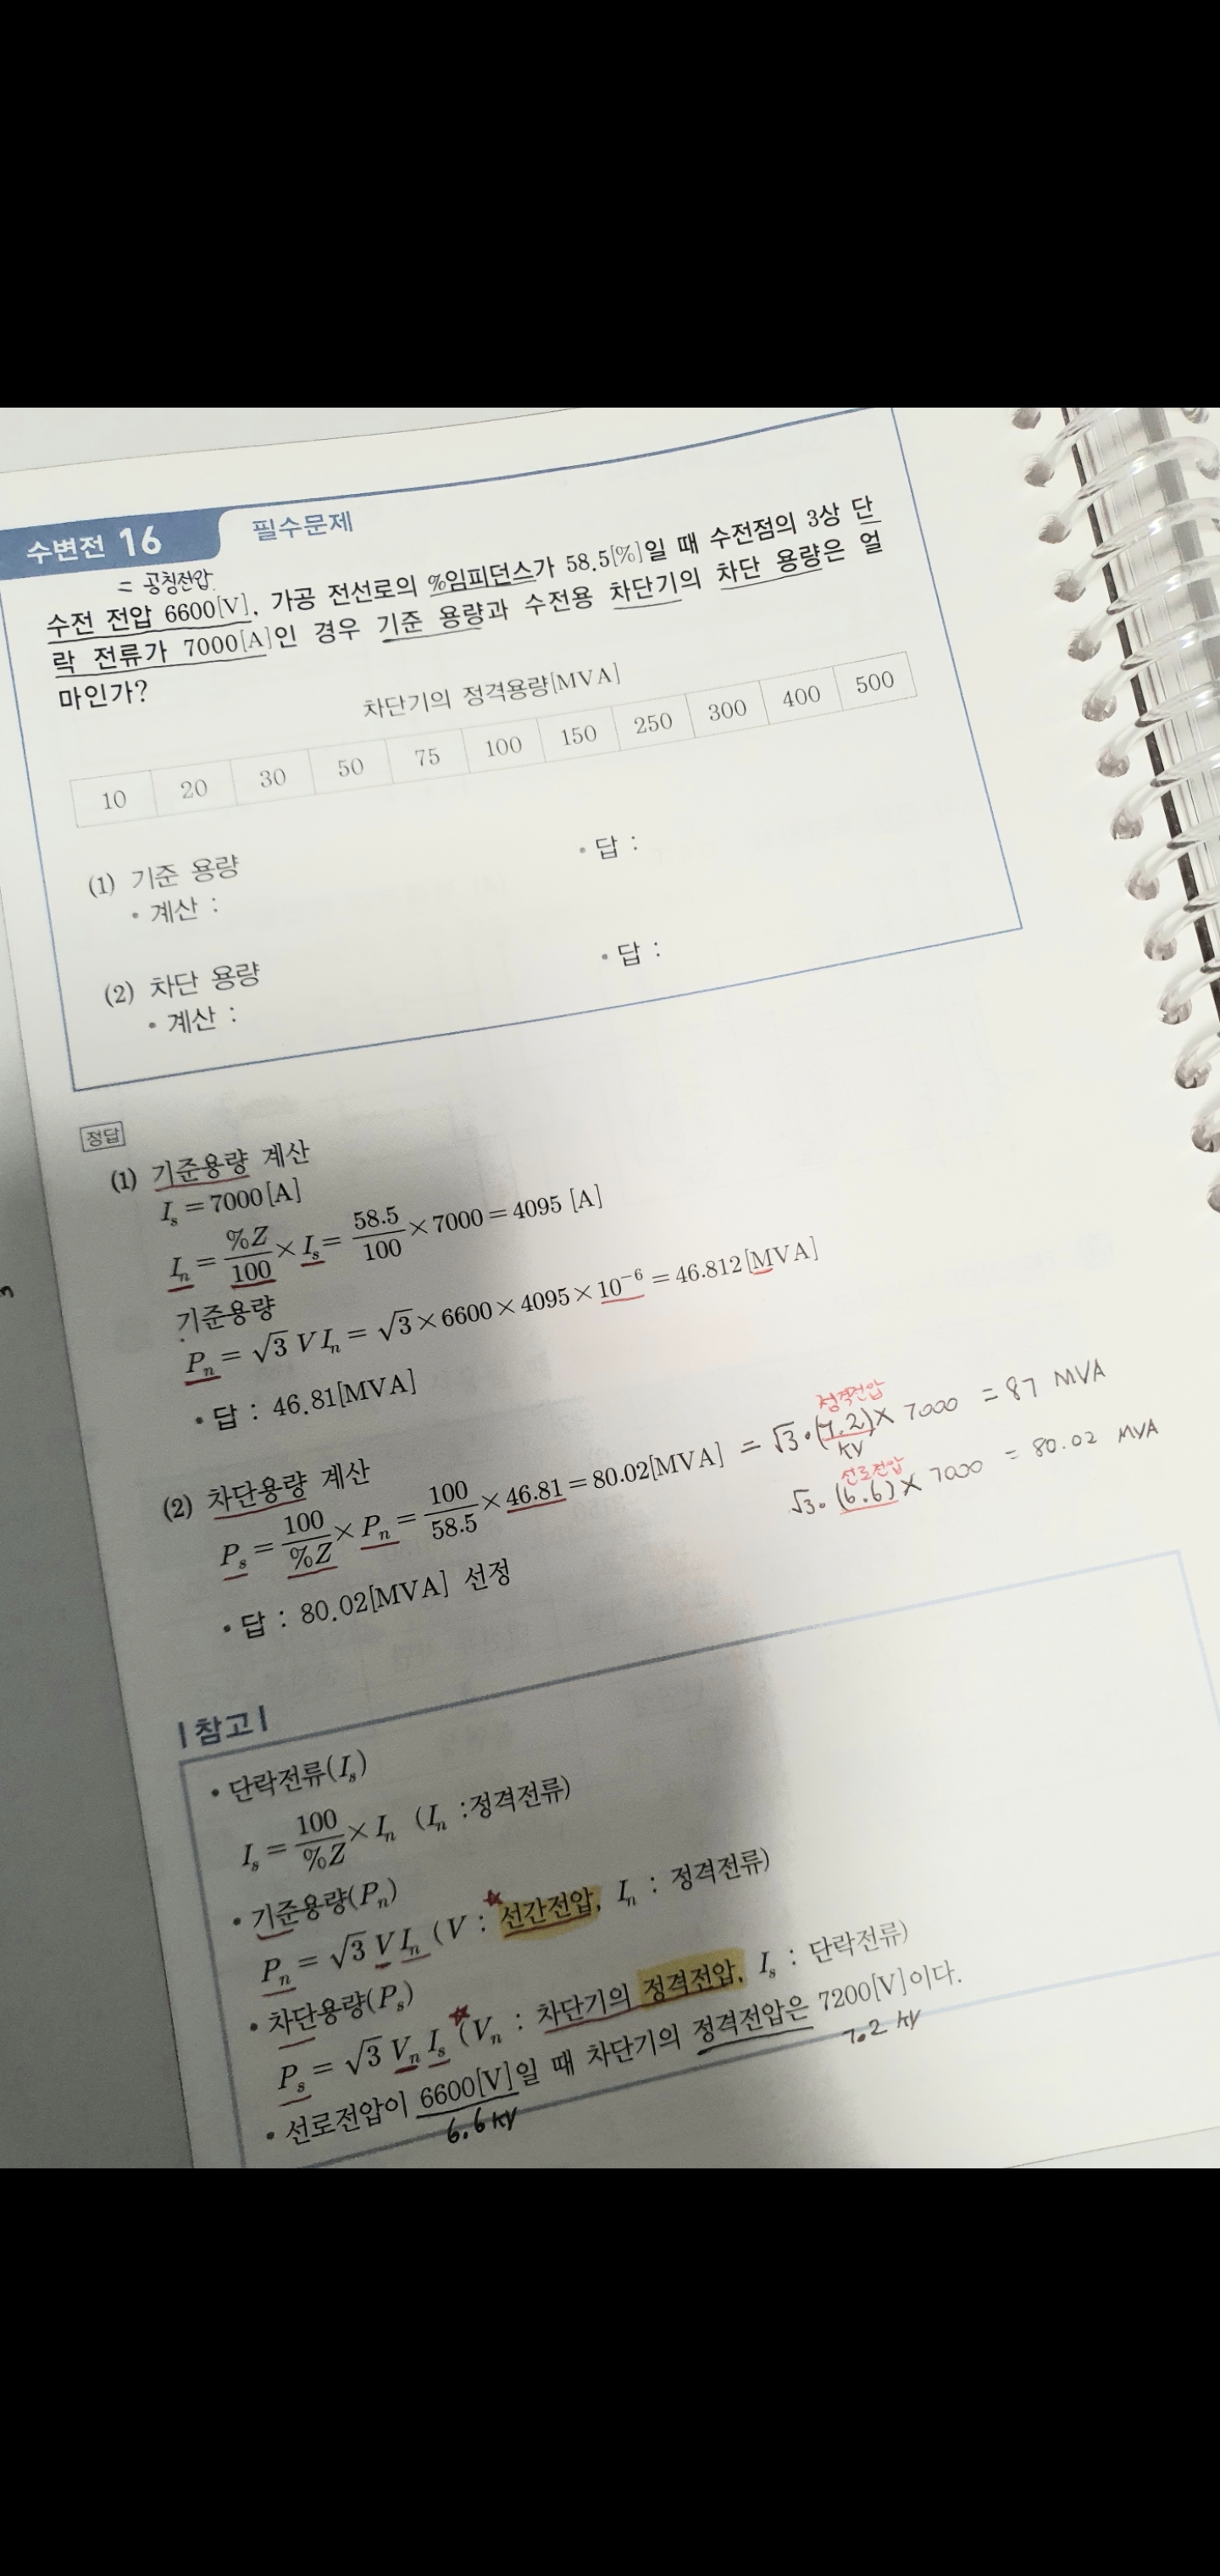 수변전 16 필수문제
= 공칭전압.
수전 전압 6600[V], 가공 전선로의 %임피던스가 58.5[%]일 때 수전점의 3상 단
락 전류가 7000[A]인 경우 기준 용량과 수전용 차단기의 차단 용량은 얼
마인가?
차단기의 정격용량[MVA]
10 20 30 50 75 100 150 250 300 400 500
(1) 기준 용량
• 계산 : • 답 :
(2) 차단 용량
• 계산 : • 답 :
정답
(1) 기준용량 계산
Iₛ = 7000[A]
Iₙ = %Z/100 × Iₛ = 58.5/100 × 7000 = 4095 [A]
기준용량
Pₙ = √3 V Iₙ = √3 × 6600 × 4095 × 10⁻⁶ = 46.812[MVA]
• 답 : 46.81[MVA]
(2) 차단용량 계산
정격전압
Pₛ = 100/%Z × Pₙ = 100/58.5 × 46.81 = 80.02[MVA] = √3 · (7.2) × 7000 = 87 MVA
kV
선로전압
√3 · (6.6) × 7000 = 80.02 MVA
• 답 : 80.02[MVA] 선정
| 참고 |
• 단락전류(Iₛ)
Iₛ = 100/%Z × Iₙ (Iₙ : 정격전류)
• 기준용량(Pₙ)
Pₙ = √3 V Iₙ (V : 선간전압, Iₙ : 정격전류)
• 차단용량(Pₛ)
Pₛ = √3 Vₙ Iₛ (Vₙ : 차단기의 정격전압, Iₛ : 단락전류)
• 선로전압이 6600[V]일 때 차단기의 정격전압은 7200[V]이다.
6.6 kV 7.2 kV